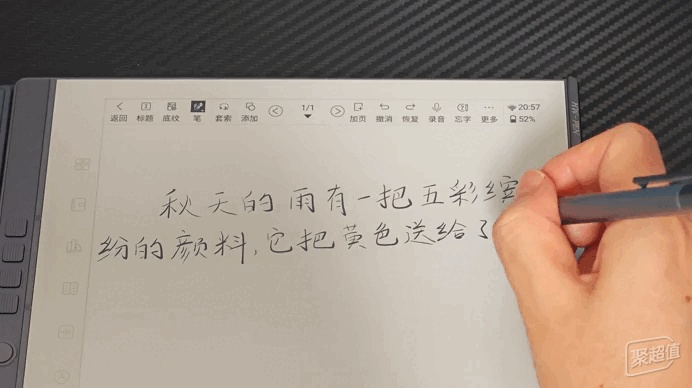 返回 标题 底纹 笔 套索 添加 1/1 加页 撤消 恢复 录音 忘字 更多 20:57 52%
秋天的雨有一把五彩缤
纷的颜料,它把黄色送给了
聚超值